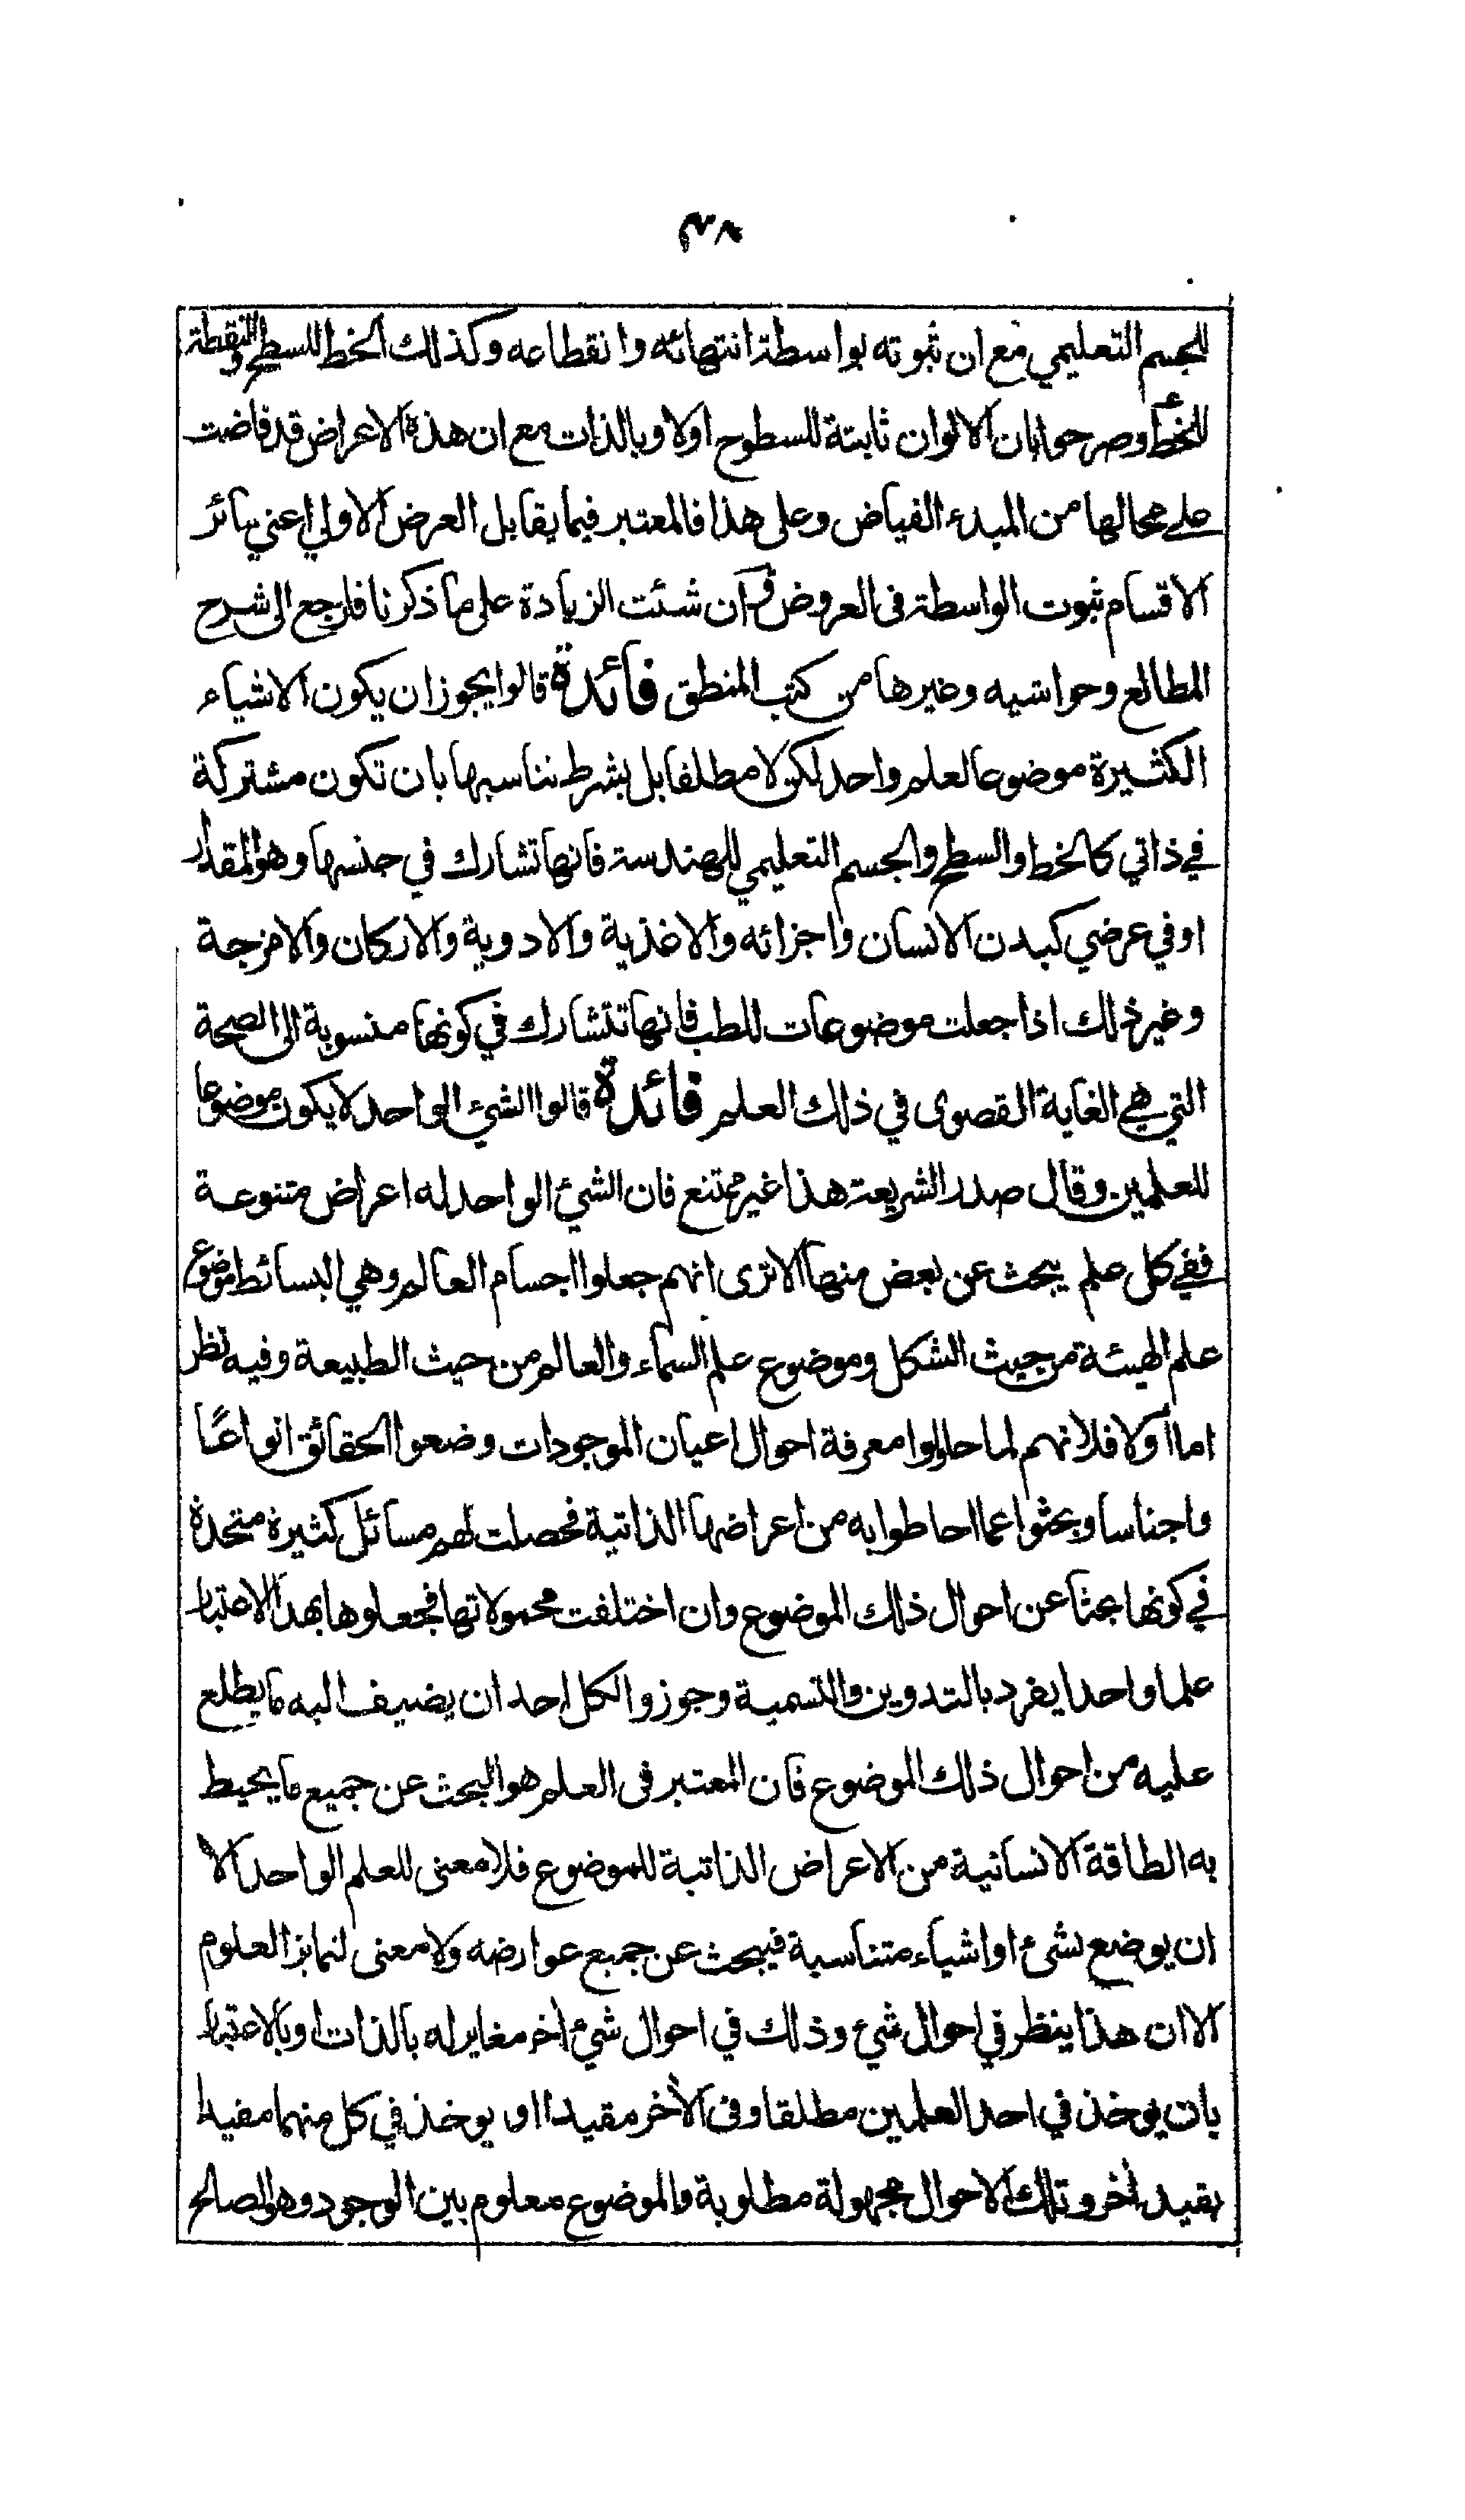 ٣٨
للجسم التعليمي مع ان ثبوته بواسطة انتهائه وانقطاعه وكذلك الخط للسطح والنقطة
للخط وصرحوا بان الالوان ثابتة للسطوح اولا وبالذات مع ان هذه الاعراض قد فاضت
على محالها من المبدء الفياض وعلى هذا فالمعتبر فيما يقابل العرض الاولي اعني سائر
الاقسام ثبوت الواسطة فى العروض وان شئت الزيادة على ما ذكرنا فارجع الى شرح
المطالع وحواشيه وغيرها من كتب المنطق فائدة قالوا يجوز ان يكون الاشياء
الكثيرة موضوعا لعلم واحد لكن لا مطلقا بل بشرط تناسبها بان تكون مشتركة
في ذاتي كالخط والسطح والجسم التعليمي للهندسة فانها تشارك في جنسها وهو المقدار
او في عرضي كبدن الانسان واجزائه والاغذية والادوية والاركان والامزجة
وغير ذلك اذا جعلت موضوعات للطب فانها تتشارك في كونها منسوبة الى الصحة
التي هي الغاية القصوى في ذلك العلم فائدة قالوا الشيء الواحد لا يكون موضوعا
للعلمين وقال صدر الشريعة هذا غير ممتنع فان الشيء الواحد له اعراض متنوعة
ففي كل علم يبحث عن بعض منها الا ترى انهم جعلوا اجسام العالم وهي البسائط موضوع
علم الهيئة من حيث الشكل وموضوع علم السماء والعالم من حيث الطبيعة وفيه نظر
اما اولا فلانهم لما حاولوا معرفة احوال اعيان الموجودات وضعوا الحقائق انواعًا
واجناسا وبحثوا عما احاطوا به من اعراضها الذاتية فحصلت لهم مسائل كثيرة متحدة
في كونها بحثا عن احوال ذلك الموضوع وان اختلفت محمولاتها فجعلوها بهذا الاعتبار
علما واحدا يفرد بالتدوين والتسمية وجوزوا لكل احد ان يضيف اليه ما يطلع
عليه من احوال ذلك الموضوع فان المعتبر فى العلم هو البحث عن جميع ما يحيط
به الطاقة الانسانية من الاعراض الذاتية للموضوع فلا معنى للعلم الواحد الا
ان يوضع شيء او اشياء متناسبة فيبحث عن جميع عوارضه ولا معنى لتمايز العلوم
الا ان هذا ينظر في احوال شيء وذلك في احوال شيء اخر مغاير له بالذات او بالاعتبار
بان يوخذ في احد العلمين مطلقا وفى الآخر مقيدا او يوخذ في كل منهما مقيدا
بقيد أخر وتلك الاحوال مجهولة مطلوبة والموضوع معلوم بين الوجود وهو الصالح